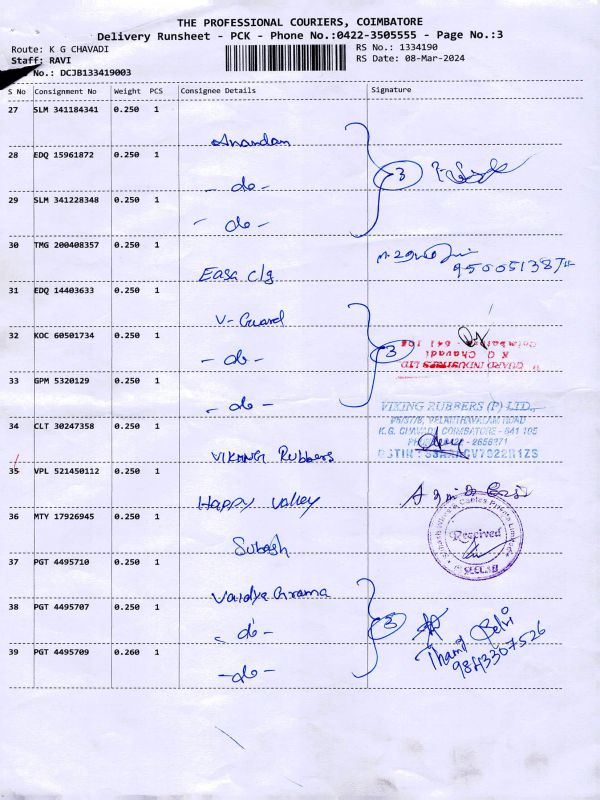 THE PROFESSIONAL COURIERS, COIMBATORE
Delivery Runsheet - PCK - Phone No.:0422-3505555 - Page No.:3
Route: K G CHAVADI
RS No.: 1334190
Staff: RAVI
RS Date: 08-Mar-2024
No.: DCJB133419003
S No Consignment No Weight PCS Consignee Details Signature
27 SLM 341184341 0.250 1
Anandan
28 EDQ 15961872 0.250 1
- do -
3
29 SLM 341228348 0.250 1
- do -
30 TMG 200408357 0.250 1
Easa c/g
31 EDQ 14403633 0.250 1
V-Guard
32 KOC 60501734 0.250 1
- do -
3
V GUARD INDUSTRIES LTD
K G Chavadi
Coimbatore 641 105
33 GPM 5320129 0.250 1
- do -
34 CLT 30247358 0.250 1
VIKING Rubbers
VIKING RUBBERS (P) LTD.,
K.G. CHAVADI, COIMBATORE - 641 105
35 VPL 521450112 0.250 1
Happy valley
36 MTY 17926945 0.250 1
Subash
Received
37 PGT 4495710 0.250 1
Vaidya Grama
38 PGT 4495707 0.250 1
- do -
3
Thamil Selvi
9843307526
39 PGT 4495709 0.260 1
- do -